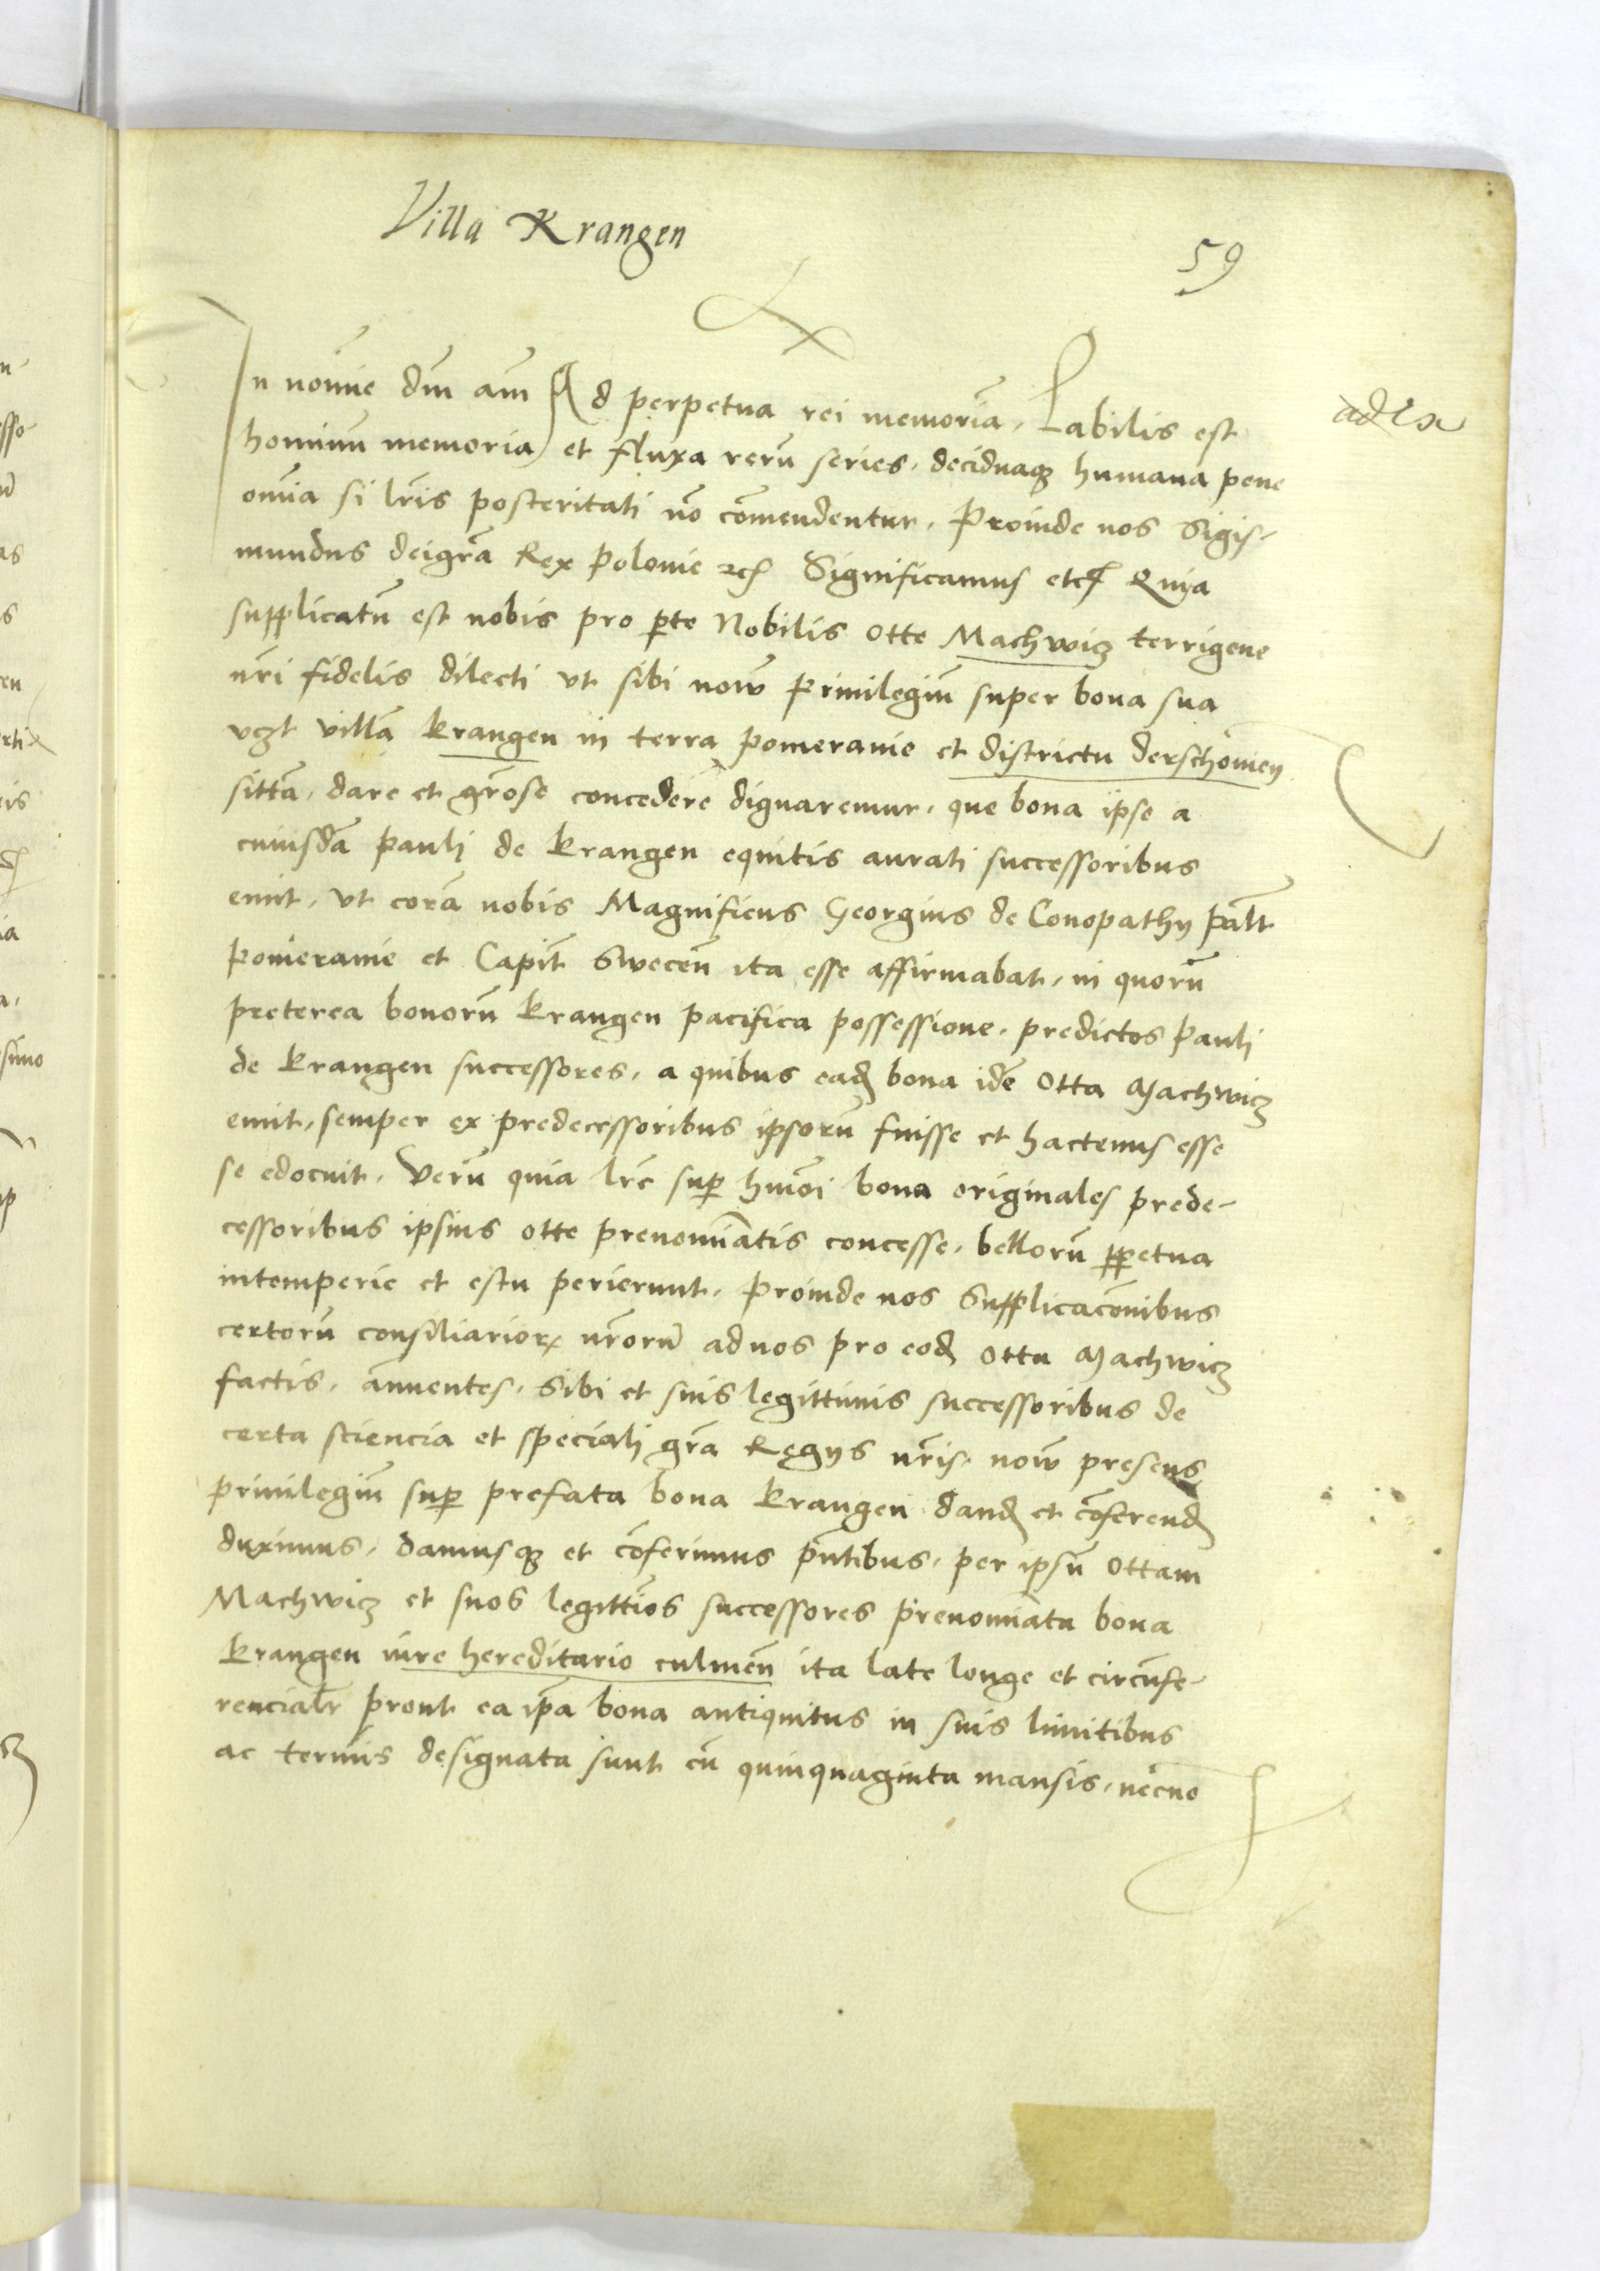 Villa Krangen
59
In noīe dn̄i am̄ Ad perpetua rei memoriā, Labilis est
hominū memoria, et fluxa rerū series, deciduaqȝ humana pene
om̄ia si lr̄is posteritati nō cōmendentur, Proinde nos Sigis-
mundus deigrā Rex Polonie etc Significamus etc Quia
supplicatū est nobis pro p̄te Nobilis Otte Machwicz terrigene
nr̄i fidelis dilecti vt sibi nouū Priuilegiū super bona sua
vczt villā Krangen in terra Pomeranie et districtu derschouien̄
sittā, dare et grōse concedere dignaremur, que bona ipse a
cuiusdā Pauli de Krangen equitis aurati successoribus
emit, vt corā nobis Magnificus Georgius de Conopathy Palt̄
Pomeranie et Capit̄ Swecen̄ ita esse affirmabat, in quorū
preterea bonorū Krangen pacifica possessione, predictos Pauli
de Krangen successores, a quibus ead̄ bona idē Otta Machwicz
emit, semper ex predecessoribus ipsorū fuisse et hactenus esse
se edocuit. Verū quia lr̄e sup̄ hmōi bona originales prede-
cessoribus ipsius Otte prenominatis concesse, bellorū ꝑpetua
intemperie et estu perierunt, Proinde nos Supplicacōnibus
certorū consiliarioꝝ nr̄orū ad nos pro eod̄ Otta Machwicz
factis, annuentes, Sibi et suis legittimis successoribus de
certa sciencia et speciali grā Regys nr̄is, nouū presens
priuilegiū sup̄ prefata bona Krangen dand̄ et cōferend̄
duximus, damusqȝ et cōferimus pn̄tibus, per ipsū Ottam
Machwicz et suos legittīos successores prenomīata bona
Krangen iure hereditario culmen̄ ita late longe et circūfe-
rencialr̄ prout ea ip̄a bona antiquitus in suis limitibus
ac termīs designata sunt cū quinquaginta mansis, necno